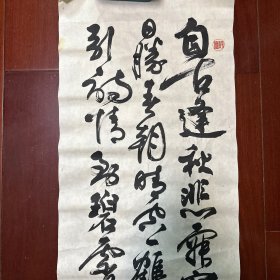 自古逢秋悲寂
日勝春朝晴空一鶴
引詩情到碧霄